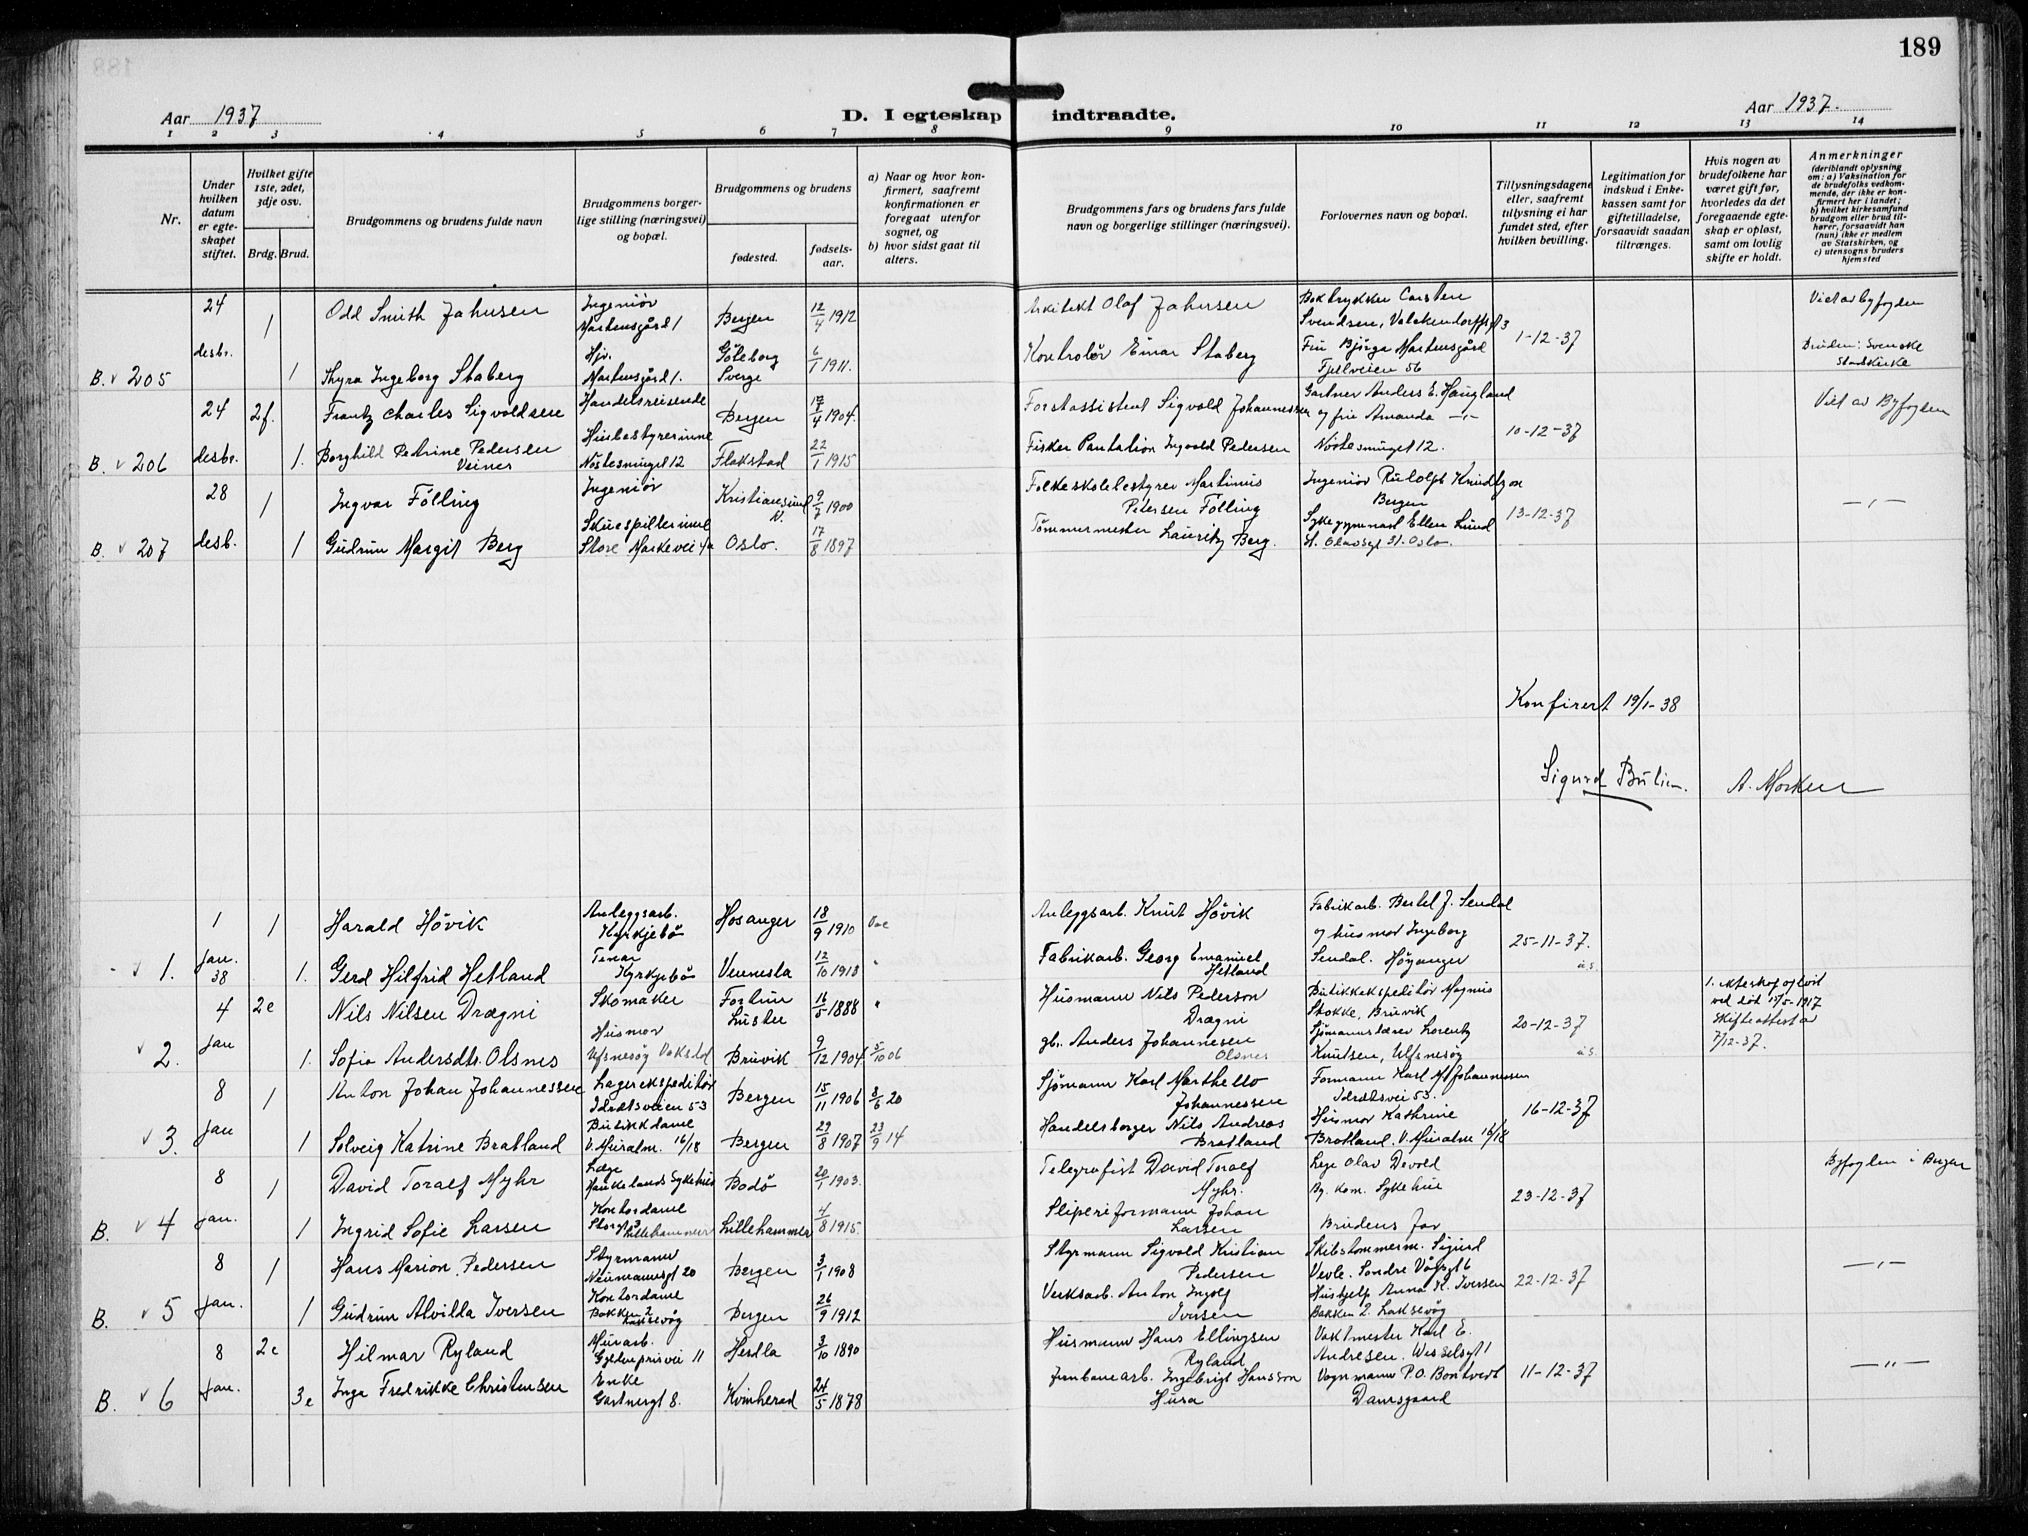 189
Aar 1937
D. I egteskap indtraadte.
Aar 1937.
1 2 3 4 5 6 7 8 9 10 11 12 13 14
Nr.
Under hvilken datum er egteskapet stiftet.
Hvilket gifte 1ste, 2det, 3dje osv.
Brdg. Brud.
Brudgommens og brudens fulde navn
Brudgommens borgerlige stilling (næringsvei) og bopæl.
Brudgommens og brudens
fødested.
fødselsaar.
a) Naar og hvor konfirmert, saafremt konfirmationen er foregaat utenfor sognet, og
b) hvor sidst gaat til alters.
Brudgommens fars og brudens fars fulde navn og borgerlige stillinger (næringsvei).
Forlovernes navn og bopæl.
Tillysningsdagene eller, saafremt tillysning ei har fundet sted, efter hvilken bevilling.
Legitimation for indskud i Enkekassen samt for giftetilladelse, forsaavidt saadan tiltrænges.
Hvis nogen av brudefolkene har været gift før, hvorledes da det foregaaende egteskap er opløst, samt om lovlig skifte er holdt.
Anmerkninger
(deriblandt oplysning om: a) Vaksination for de brudefolks vedkommende, der ikke er konfirmert her i landet;
b) hvilket kirkesamfund brudgom eller brud tilhører, forsaavidt han (hun) ikke er medlem av Statskirken, og
c) utensogns bruders hjemsted
24 1 Odd Smith Jahnsen Ingeniør Martensgård 1 Bergen 12/4 1912 Arkitekt Olaf Jahnsen Boktrykker Carsten Svendsen, Valckendorffsgt 3 1-12-37 Viet av byfogden
B. v 205 desbr. 1 Thyra Ingeborg Staberg Hjv. Martensgård 1. Göteborg Sverge 6/1 1911. Kontrolør Einar Staberg Fru Bjørga Martensgård Fjellveien 56 Bruden: Svenske Stadskirke
24 2f. Frantz Charles Sigvoldsen Handelsreisende Bergen 17/4 1904. Forstassistent Sigvald Johannessen Gartner Anders E. Haugland og fru Amanda -"- 10-12-37 Viet av Byfogden
B. v 206 desbr. 1. Borghild Petrine Pedersen Veines Husbestyrerinne Nøstesmuget 12 Flakstad 22/1 1915 Fisker Pantalion Ingvald Pedersen Nøstesmuget 12.
28 1 Ingvar Følling Ingeniør Kristiansund N. 9/7 1900 Folkeskolebestyrer Martinus Petersen Følling Ingeniør Rudolph Knudtzon Bergen 13-12-37 -"-
B. v 207 desb. 1 Gudrun Margit Berg Skuespillerinne Store Markevei 4a Oslo. 17/8 1897 Tømmermester Lauritz Berg. Sykegymnast Ellen Lund St. Olavsgt 31. Oslo.
Konfirert 19/1-38
Sigurd Bulien. A. Morken
1 1 Harald Høvik Anleggsarb. Kyrkjebø Hosanger 18/9 1910 Anleggsarb. Knut Høvik Fabrikarb. Bertel J. Sendal og husmor Ingeborg 25-11-37.
v 1. jan. 38 1. Gerd Hilfrid Hetland Kyrkjebø Vennesla 12/10 1918 " Fabrikarb. Georg Emanuel Hetland Sendal. Høyanger
4 2e Nils Nilsen Drægni Skomaker Fortun Luster 16/5 1888 " Husmann Nils Pederson Drægni Butikkekspeditør Magnus Stokke, Bruvik 20-12-37 1. ekteskap opløst ved død 17/5-1917 Skifteattest av 7/12-37.
v 2. Jan 1. Sofia Andersdtr. Olsnes Husmor Bruvik 9/12 1904 5/10 06 gbr. Anders Johannesen Olsnes Sjømannslærer Lorentz Knutsen, Ulfsnesøg
8 1 Anton Johan Johannessen Lagerekspeditør Idrætsveien 53 Bergen 15/11 1906 3/6 20 Sjømann Karl Marthello Johannessen Formann Karl M Johannessen Idrætsvei 53. 16-12-37
v 3. Jan 1 Solveig Katrine Bratland Butikkdame V. Muralm. 16/18 Bergen 29/8 1907 23/9 14 Handelsborger Nils Andreas Bratland Husmor Kathrine Bratland. V. Muralm 16/18
8 1 David Toralf Myhr Læge Haukelands Sykehus Bodø 20/1 1903. Telegrafist David Toralf Myhr. Lege Olav Devold By. kom. Sykehus 23-12-37 Byfogden i Bergen
B. v 4 jan. 1 Ingrid Sofie Larsen Kontordame Storgt Lillehammer Lillehammer 4/8 1915. Sliperiformann Johan Larsen Brudens far
8 1 Hans Marion Pedersen Styrmann Neumannsgt 20 Bergen 3/1 1908 Styrmann Sigvald Kristian Pedersen Skibstømmerm. Sigurd Vevle. Søndre Vågsgt 6 22-12-37 -"-
B. v 5 Jan. 1 Gudrun Alvilla Iversen Kontordame Bakken 2 Laksevåg Bergen 26/9 1912 Verksarb. Anton Ingolf Iversen Hushjelp Anna K. Iversen Bakken 2. Laksevåg
8 2e Hilmar Ryland Murarb. Gyldenprisvei 11 Herdla 3/10 1890 Husmann Hans Ellingsen Ryland Vaktmester Karl E. Andresen. Wesselsgt 1 11-12-37 -"-
B. v 6 jan. 3e Inga Fredrikke Christensen Enke Gartnergt 8. Kvinherad 24/5 1878 Jernbanearb. Ingebrigt Hansson Husa Vognmann P.O. Bontveit Damsgaard